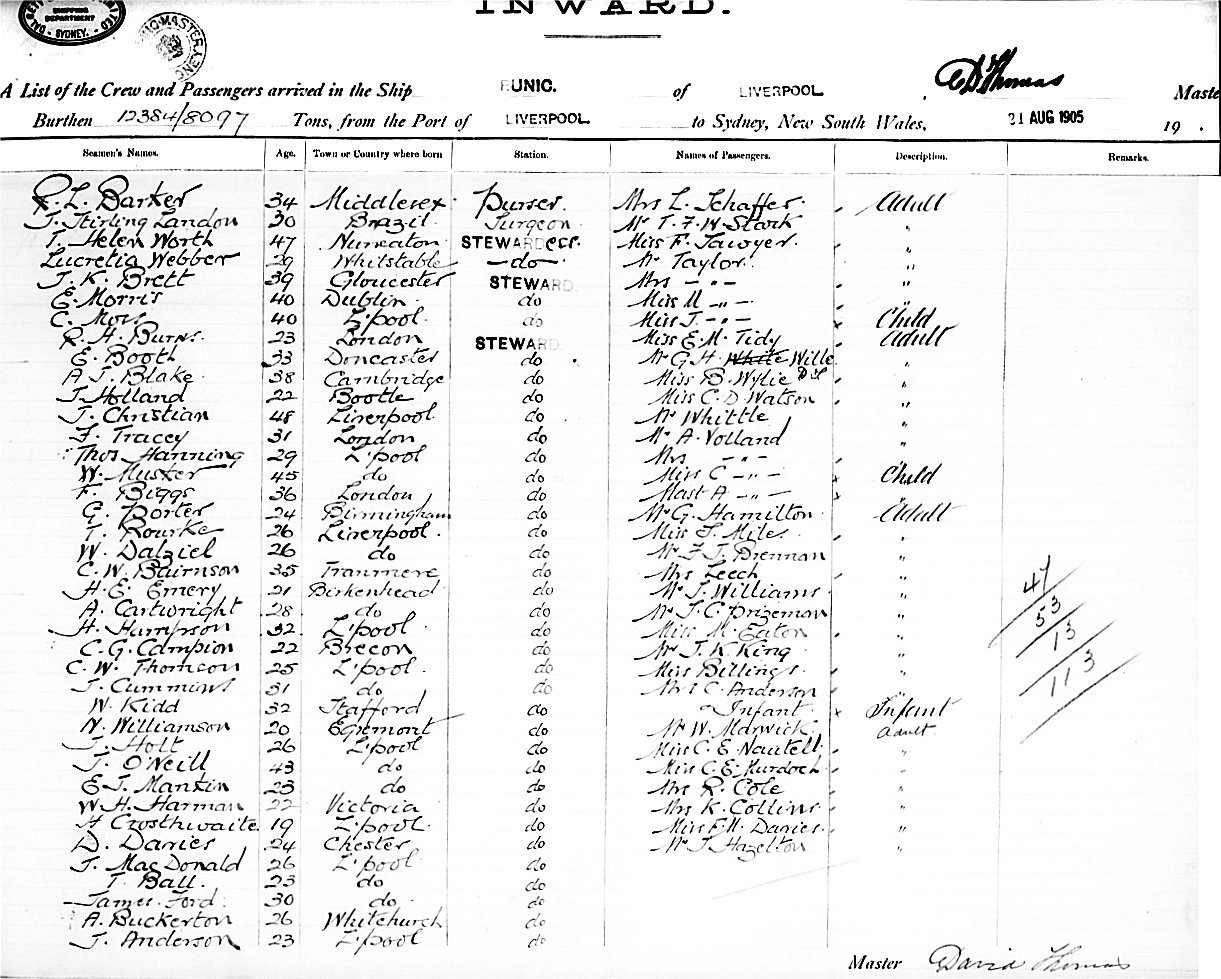 INWARD.
SHIPPING
DEPARTMENT
SYDNEY.
D Thomas
A List of the Crew and Passengers arrived in the Ship RUNIC. of LIVERPOOL Maste
Burthen 12384/8097 Tons, from the Port of LIVERPOOL. to Sydney, New South Wales, 21 AUG 1905 19 .
Seamen's Names. Age. Town or Country where born Station. Names of Passengers. Description. Remarks.
R. L. Barker 34 Middlesex Purser Mrs L. Schaffer Adult
J. Stirling Landon 30 Brazil Surgeon Mr T. F. W. Stark "
T. Helen Worth 47 Nuneaton STEWARDess. Miss F. Sawyer "
Lucretia Webber 29 Whitstable —do— Mr Taylor "
J. K. Brett 39 Gloucester STEWARD Mrs — " — "
E. Morris 40 Dublin do Miss M — " — "
C. Mors 40 L'pool do Miss J. — " — Child
R. H. Burns 23 London STEWARD Miss E. M. Tidy Adult
E. Booth 33 Doncaster do Mr G. H. White Wille "
A. J. Blake 38 Cambridge do Miss B. Wylie "
J. Holland 22 Bootle do Miss C. D. Watson "
J. Christian 48 Liverpool do Mr Whittle "
F. Tracey 31 London do Mr A. Volland "
Thos Hanning 29 L'pool do Mrs — " — "
W. Muster 45 do do Miss C — " — Child
F. Biggs 36 London do Mast A — " — "
G. Porter 24 Birmingham do Mr G. Hamilton Adult
T. Rourke 26 Liverpool do Miss S. Miles "
W. Dalziel 26 do do Mr F. J. Brennan "
C. W. Bairnson 35 Tranmere do Mrs Leech " 47
H. E. Emery 21 Birkenhead do Mr J. Williams "
A. Cartwright 28 do do Mr J. C. Prizeman " 53
H. Hampson 32 L'pool do Miss M. Eaton "
C. G. Campion 22 Brecon do Mr J. K. King " 13
C. W. Thomson 25 L'pool do Miss Billings "
J. Cummins 31 do do Mrs C. Anderson " 113
W. Kidd 32 Stafford do " Infant Infant
N. Williamson 20 Egremont do Mr W. Marwick Adult
J. Holt 26 L'pool do Miss C. E. Nautell "
J. O'Neill 43 do do Miss C. E. Murdoch "
E. J. Mankin 23 do do Mrs R. Cole "
W. H. Harman 22 Victoria do Mrs K. Collins "
A Crosthwaite 19 L'pool do Miss F. M. Davies "
D. Davies 24 Chester do Mr J. Hazelton "
J. MacDonald 26 L'pool do
T. Ball 23 do do
James Ford 30 do do
A. Buckerton 26 Whitchurch do
J. Anderson 23 L'pool do
Master David Thomas